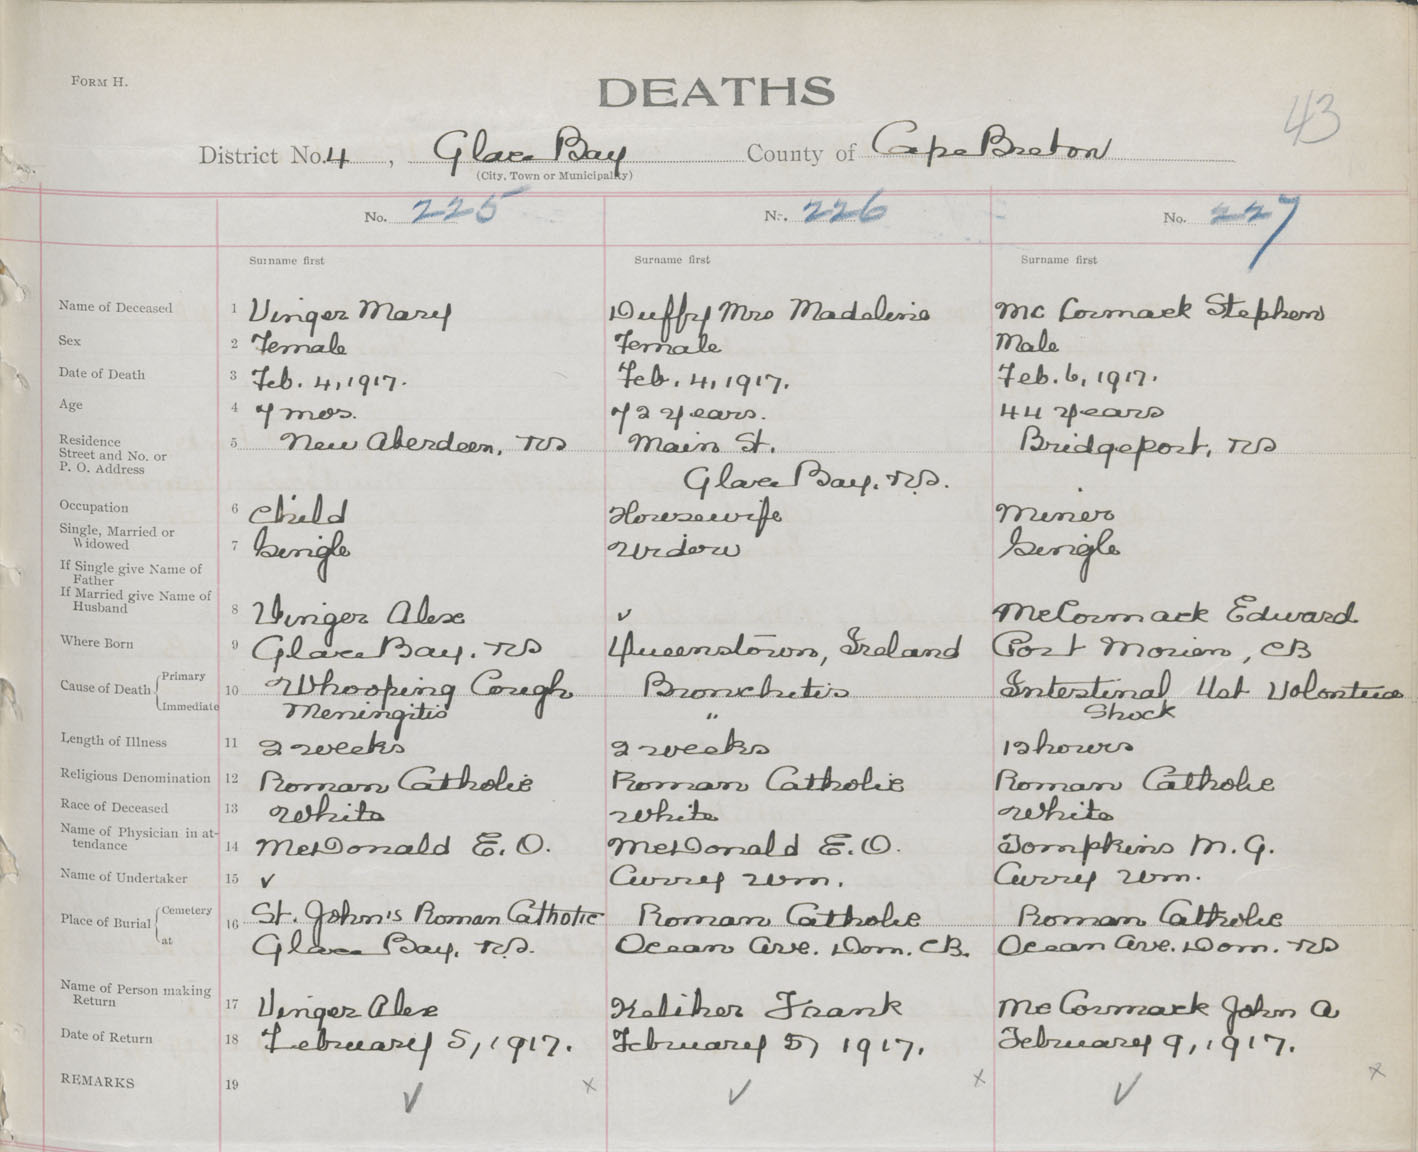 FORM H.
DEATHS
43
District No. 4, Glace Bay County of Cape Breton
(City, Town or Municipality)
No. 225 No. 226 No. 227
Surname first Surname first Surname first
Name of Deceased 1 Vinger Mary Duffy Mrs Madeline McCormack Stephen
Sex 2 Female Female Male
Date of Death 3 Feb. 4, 1917. Feb. 4, 1917. Feb. 6, 1917.
Age 4 7 mos. 72 years. 44 years
Residence 5 New Aberdeen, NS Main St. Bridgeport, NS
Street and No. or
P. O. Address Glace Bay, N.S.
Occupation 6 Child Housewife Miner
Single, Married or
Widowed 7 Single Widow Single
If Single give Name of
Father
If Married give Name of
Husband 8 Vinger Alex ✓ McCormack Edward
Where Born 9 Glace Bay, NS Queenstown, Ireland Port Morien, CB
Cause of Death Primary 10 Whooping Cough Bronchitis Intestinal
Immediate Meningitis " Shock
Length of Illness 11 2 weeks 2 weeks 12 hours
Religious Denomination 12 Roman Catholic Roman Catholic Roman Catholic
Race of Deceased 13 White White White
Name of Physician in at-
tendance 14 McDonald E. O. McDonald E. O. Tompkins M. G.
Name of Undertaker 15 ✓ Currey Wm. Currey Wm.
Place of Burial Cemetery 16 St. John's Roman Catholic Roman Catholic Roman Catholic
at Glace Bay, N.S. Ocean Ave. Dom. CB. Ocean Ave. Dom. NS
Name of Person making
Return 17 Vinger Alex Keliher Frank McCormack John A
Date of Return 18 February 5, 1917. February 5, 1917. February 9, 1917.
REMARKS 19 ✓ x ✓ x ✓ x